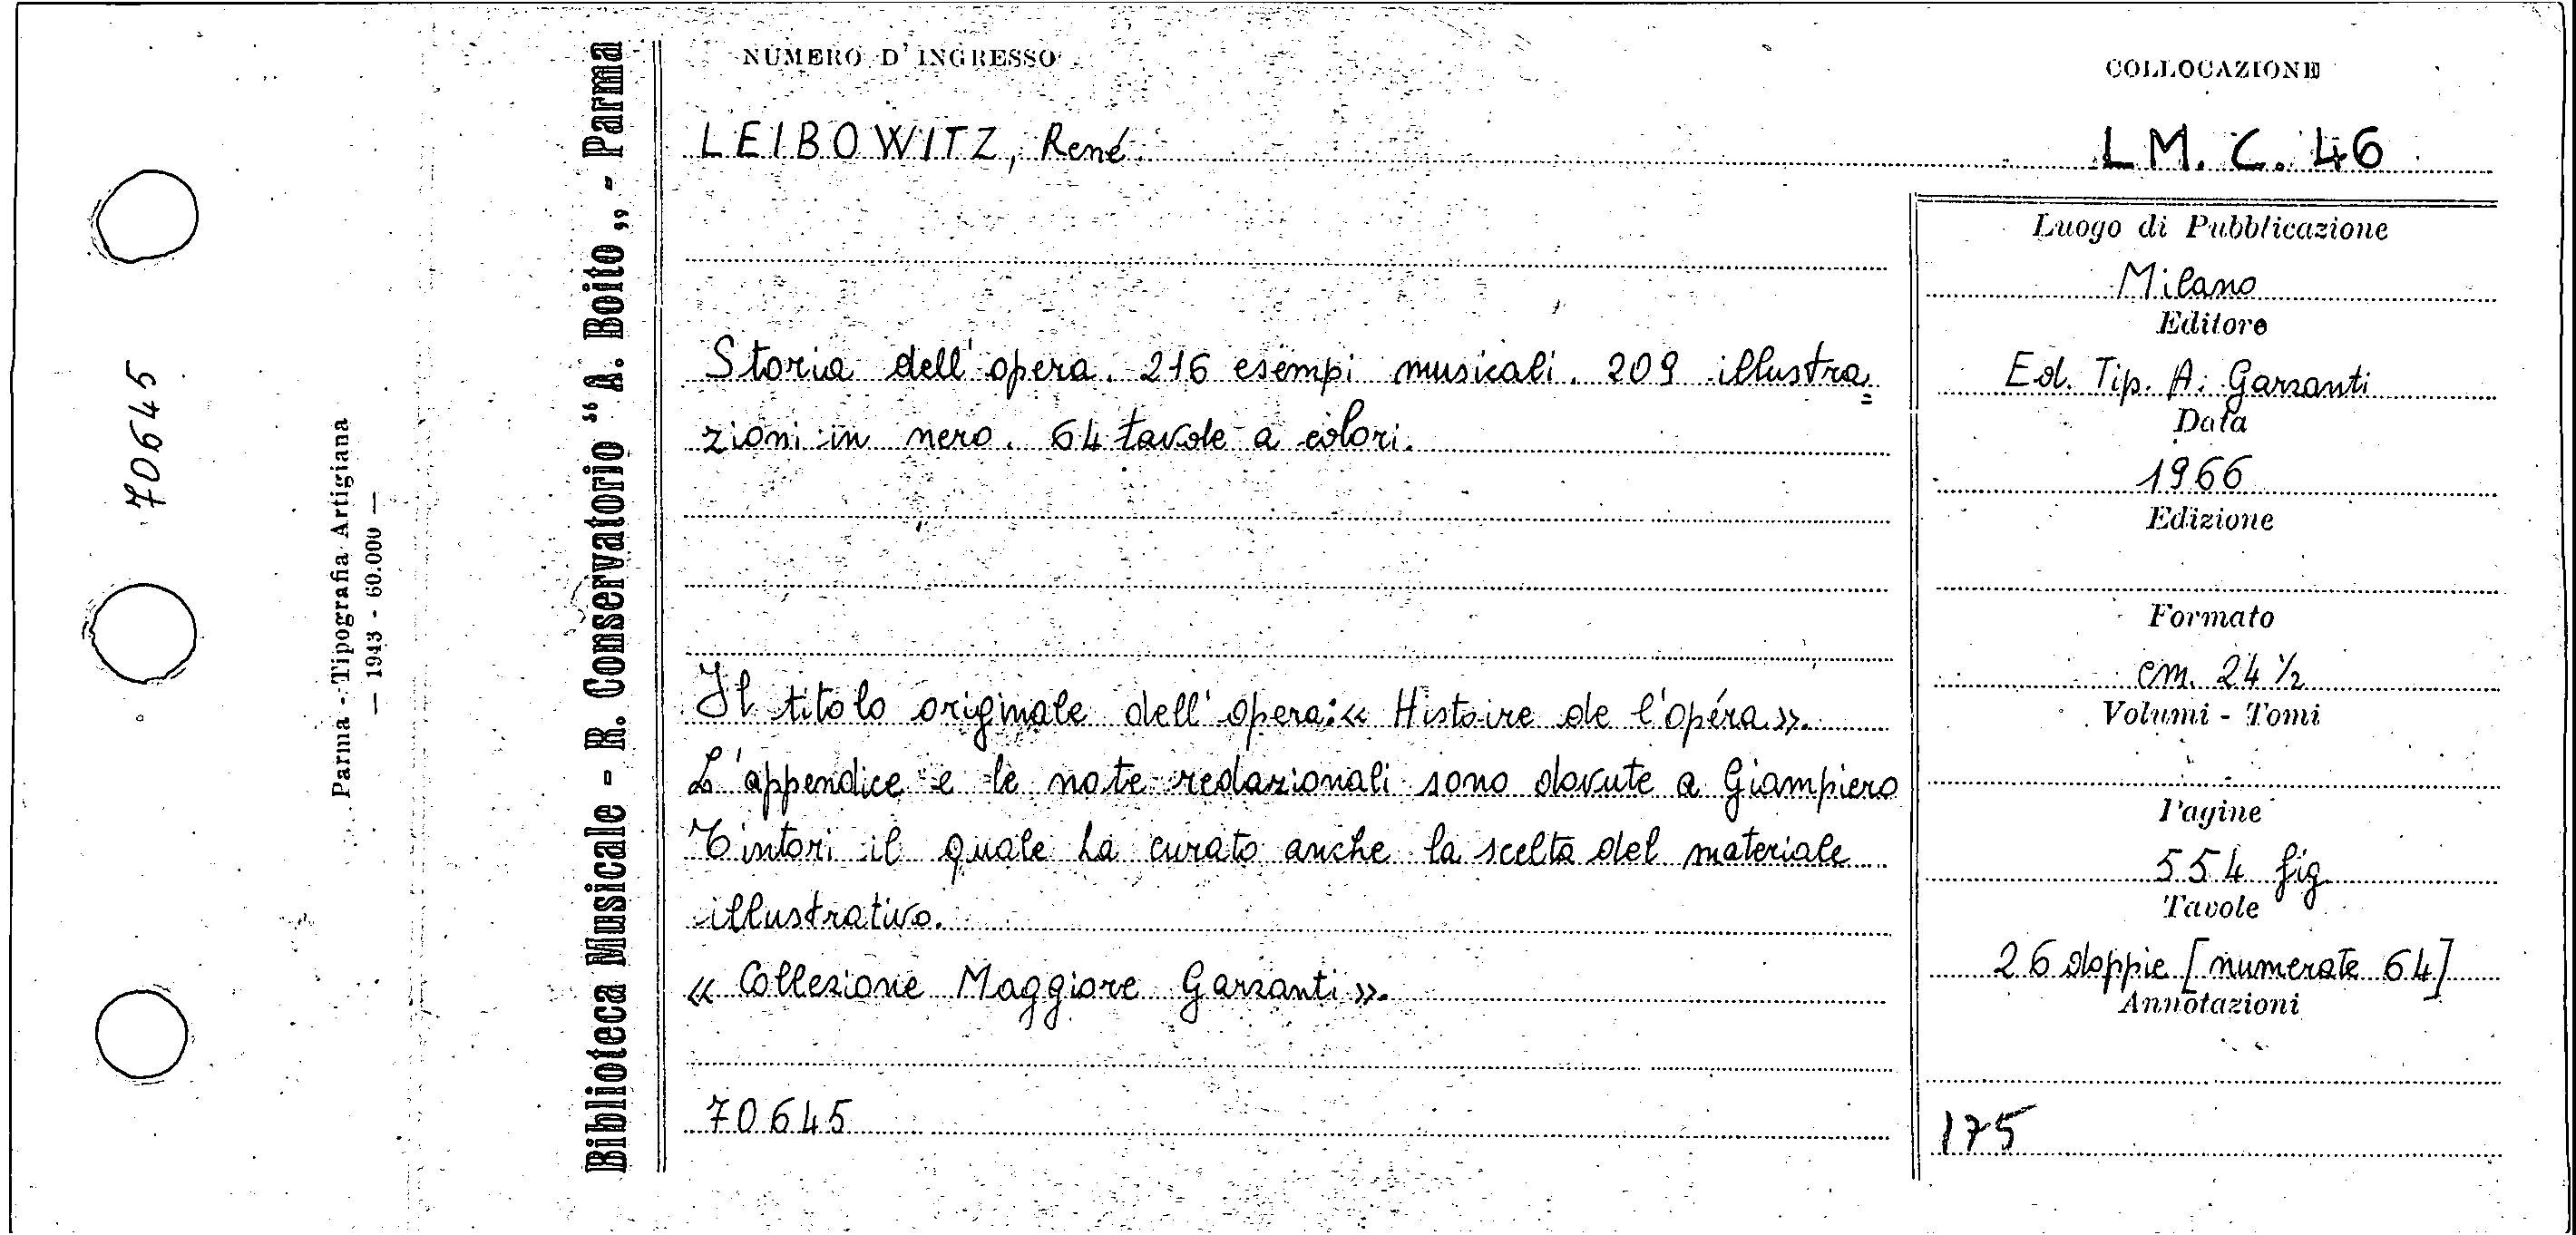 70645
Parma - Tipografia Artigiana
— 1943 - 60.000 —
Biblioteca Musicale - R. Conservatorio “ A. Boito „ - Parma
NUMERO D'INGRESSO
COLLOCAZIONE
LEIBOWITZ, René.
LM. C. 46
Storia dell'opera. 216 esempi musicali. 209 illustra=
zioni in nero. 64 tavole a colori.
Il titolo originale dell'opera: « Histoire de l'opéra ».
L'appendice e le note redazionali sono dovute a Giampiero
Tintori il quale ha curato anche la scelta del materiale
illustrativo.
« Collezione Maggiore Garzanti ».
70645
Luogo di Pubblicazione
Milano
Editore
Ed. Tip. A. Garzanti
Data
1966
Edizione
Formato
cm. 24 ½
Volumi - Tomi
Pagine
554 fig.
Tavole
26 doppie [numerate 64]
Annotazioni
175